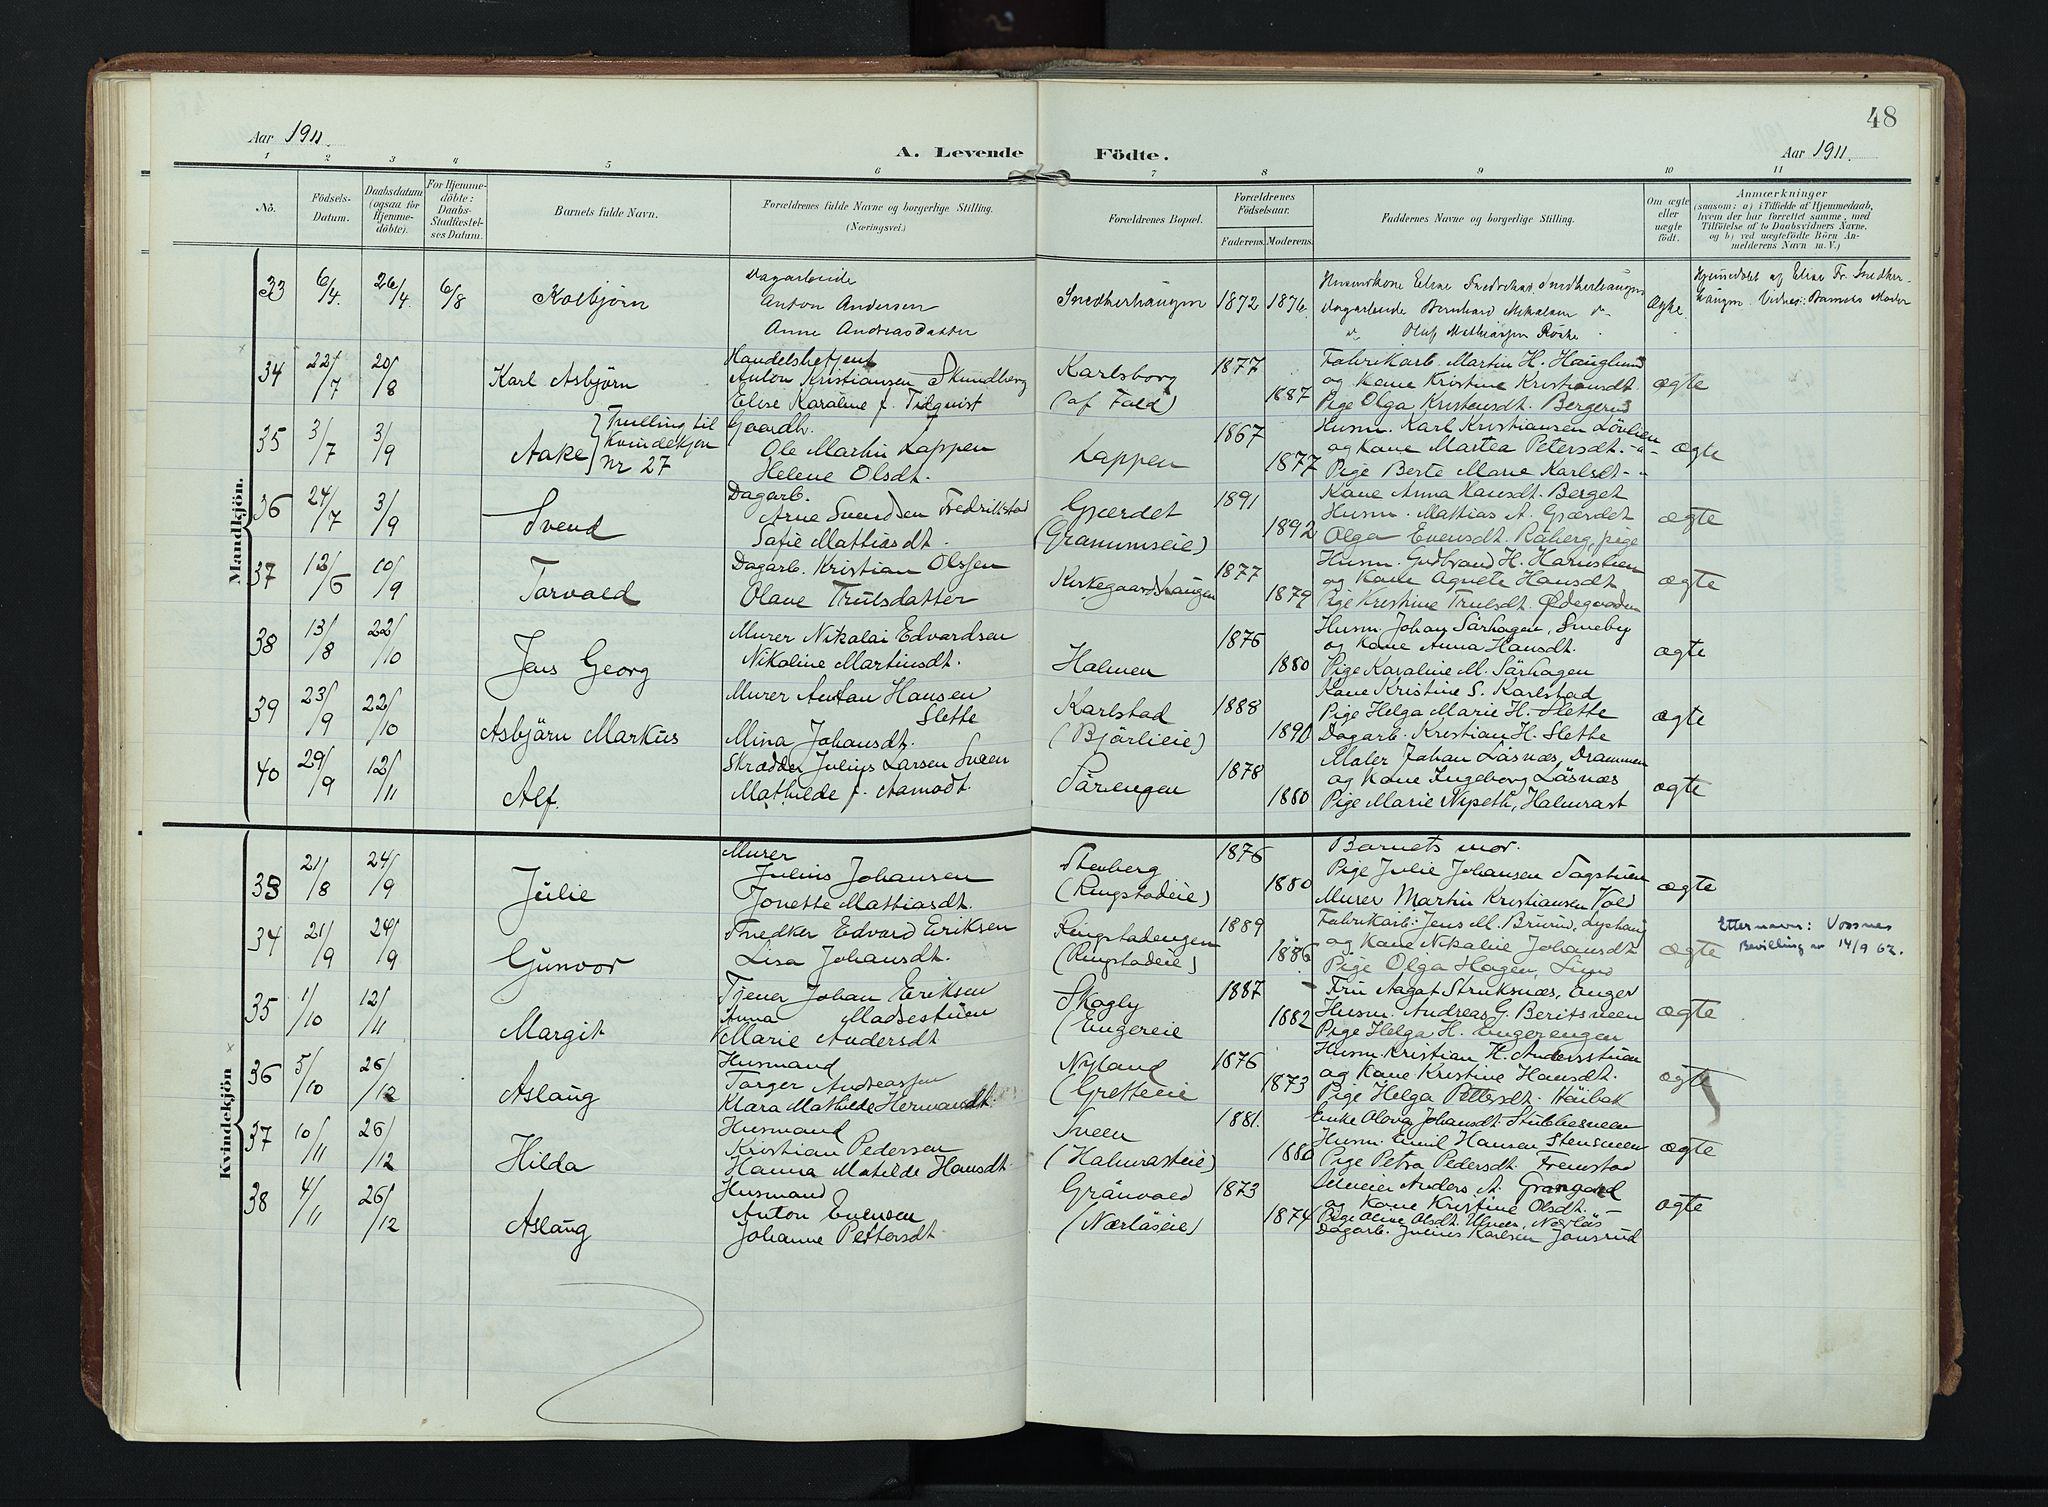 48
Aar 1911.
A. Levende Födte.
Aar 1911.
1 2 3 4 5 6 7 8 9 10 11
No.
Födsels-Datum.
Daabsdatum (ogsaa for Hjemmedöbte).
For Hjemmedöbte: Daabs-Stadfæstelses Datum.
Barnets fulde Navn.
Forældrenes fulde Navne og borgerlige Stilling. (Næringsvei.)
Forældrenes Bopæl.
Forældrenes Födselsaar.
Faderens. Moderens.
Faddernes Navne og borgerlige Stilling.
Om ægte eller uægte födt.
Anmærkninger
(saasom: a) i Tilfælde af Hjemmedaab, hvem der har forrettet samme, med Tilföielse af to Daabsvidners Navne, og b) ved uægtefödte Börn Anmelderens Navn m. V.)
Mandkjön.
33 6/4. 26/4 6/8 Kolbjörn
Dagarbeide
Anton Andersen
Anne Andreasdatter
Snedkerhaugen 1872 1876.
Olaf Mathiassen
Ægte.
34 22/7 20/8 Karl Asbjörn
Handelsbetjent
Anton Kristiansen Skundberg
Elise Karaline f. Tidqvist
Karlsborg
(af Fald)
1877 1887
Fabrikarb. Martin H. Hauglund
og Kone Kristine Kristiansdt.
Pige Olga Kristensdt. Bergerud
ægte
35 3/7 3/9 Aake
Trilling til
Kvindekjön
Nr 27
Gaardb.
Ole Martin Lappen
Helene Olsdt.
Lappen
1867 1877
Husm. Karl Kristiansen Lövlien
og Kone Martea Petersdt. -"-
Pige Berte Marie Karlsdt - "
ægte
36 24/7 3/9 Svend
Dagarb.
Arne Svendsen Fredrikstad
Sofie Mattiasdt.
Gjærdet
(Grammseie)
1891 1892
Kone Anna Hansdt. Berget
Husm. Mattias A. Gjærdet
Olga Evensdt. Raberg, pige
ægte
37 12/6 10/9 Torvald
Dagarb. Kristian Olssen
Olave Trulsdatter
Kirkegaardshaugen
1877 1879
Husm. Gudbrand H.
og Kone Agnete Hansdt
Pige Kristine Trulsdt. Ödegaarden
ægte
38 13/8 22/10 Jens Georg
Murer Nikolai Edvardsen
Nikoline Martinsdt.
Halmen
1876 1880
Husm. Johan Sörhagen, Smeby
og Kone Anna Hansdt.
Pige Karaline M. Sörhagen
ægte
39 23/9 22/10 Asbjörn Markus
Murer Anton Hansen
Slette
Mina Johansdt.
Karlstad
(Bjärlieie)
1888 1890
Kone Kristine S. Karlstad
Pige Helga Marie H. Slette
Dagarb. Kristian H. Slette
ægte
40 29/9 12/11 Alf.
Skrædder Julius Larsen Sveen
Mathilde f. Aamodt.
Sörengen
1878 1880
Maler Johan Läsnæs, Drammen
og Kone Ingeborg Läsnæs
Pige Marie Nyseth, Halmrast
ægte
Kvindekjön
33 21/8 24/9 Julie
Murer
Julius Johansen
Jonette Mattiasdt.
Stenberg
(Ringstadeie)
1876 1880
Barnets mor.
Pige Julie Johansen Sagstuen
Murer Martin Kristiansen Vold
ægte
34 21/9 24/9 Gunvor
Snedker Edvard Eriksen
Lisa Johansdt.
Ringstadengen
(Ringstadeie)
1889 1886
Fabrikarb: Jens M. Brurud, Lyshaug
og Kone Nikoline Johansdt
Pige Olga Hagen, Lund
ægte
Etternavn: Vossnes
Bevilling av 14/9 62.
35 1/10 12/11 Margit
Tjener Johan Eriksen
Anna Madsestuen
Marie Andersdt
Skogly
(Engereie
1887 1882
Fru Aagot Struksnæs, Enger
Husm. Andreas G. Beritsveen
Pige Helga H. Engerengen
ægte
36 5/10 26/12 Aslaug
Husmand
Torger Andreassen
Klara Mathilde Hermansdt.
Nyland
(Gretteeie
1876 1873
Husm. Kristian H. Andersstuen
og Kone Kristine Hansdt.
Pige Helga Pettersdt. Höibak
ægte
37 10/11 26/12 Hilda
Husmand
Kristian Pedersen
Hanna Matilde Hansdt.
Sveen
(Halmrasteie)
1881. 1880
Enke Olava Johansdt. Stubbesveen
Husm. Emil Hansen Stensveen
Pige Petra Pedersdt. Fremstad
ægte
38 4/11 26/12 Aslaug
Husmand
Anton Evensen
Johanne Pettersdt
Grönvold
(Nærläseie)
1873 1874
Anders A.
og Kone Kristine Olsdt. -
Pige Oline Olsdt. Nærläs
Dagarb. Julius Karlsen Jonsrud
ægte